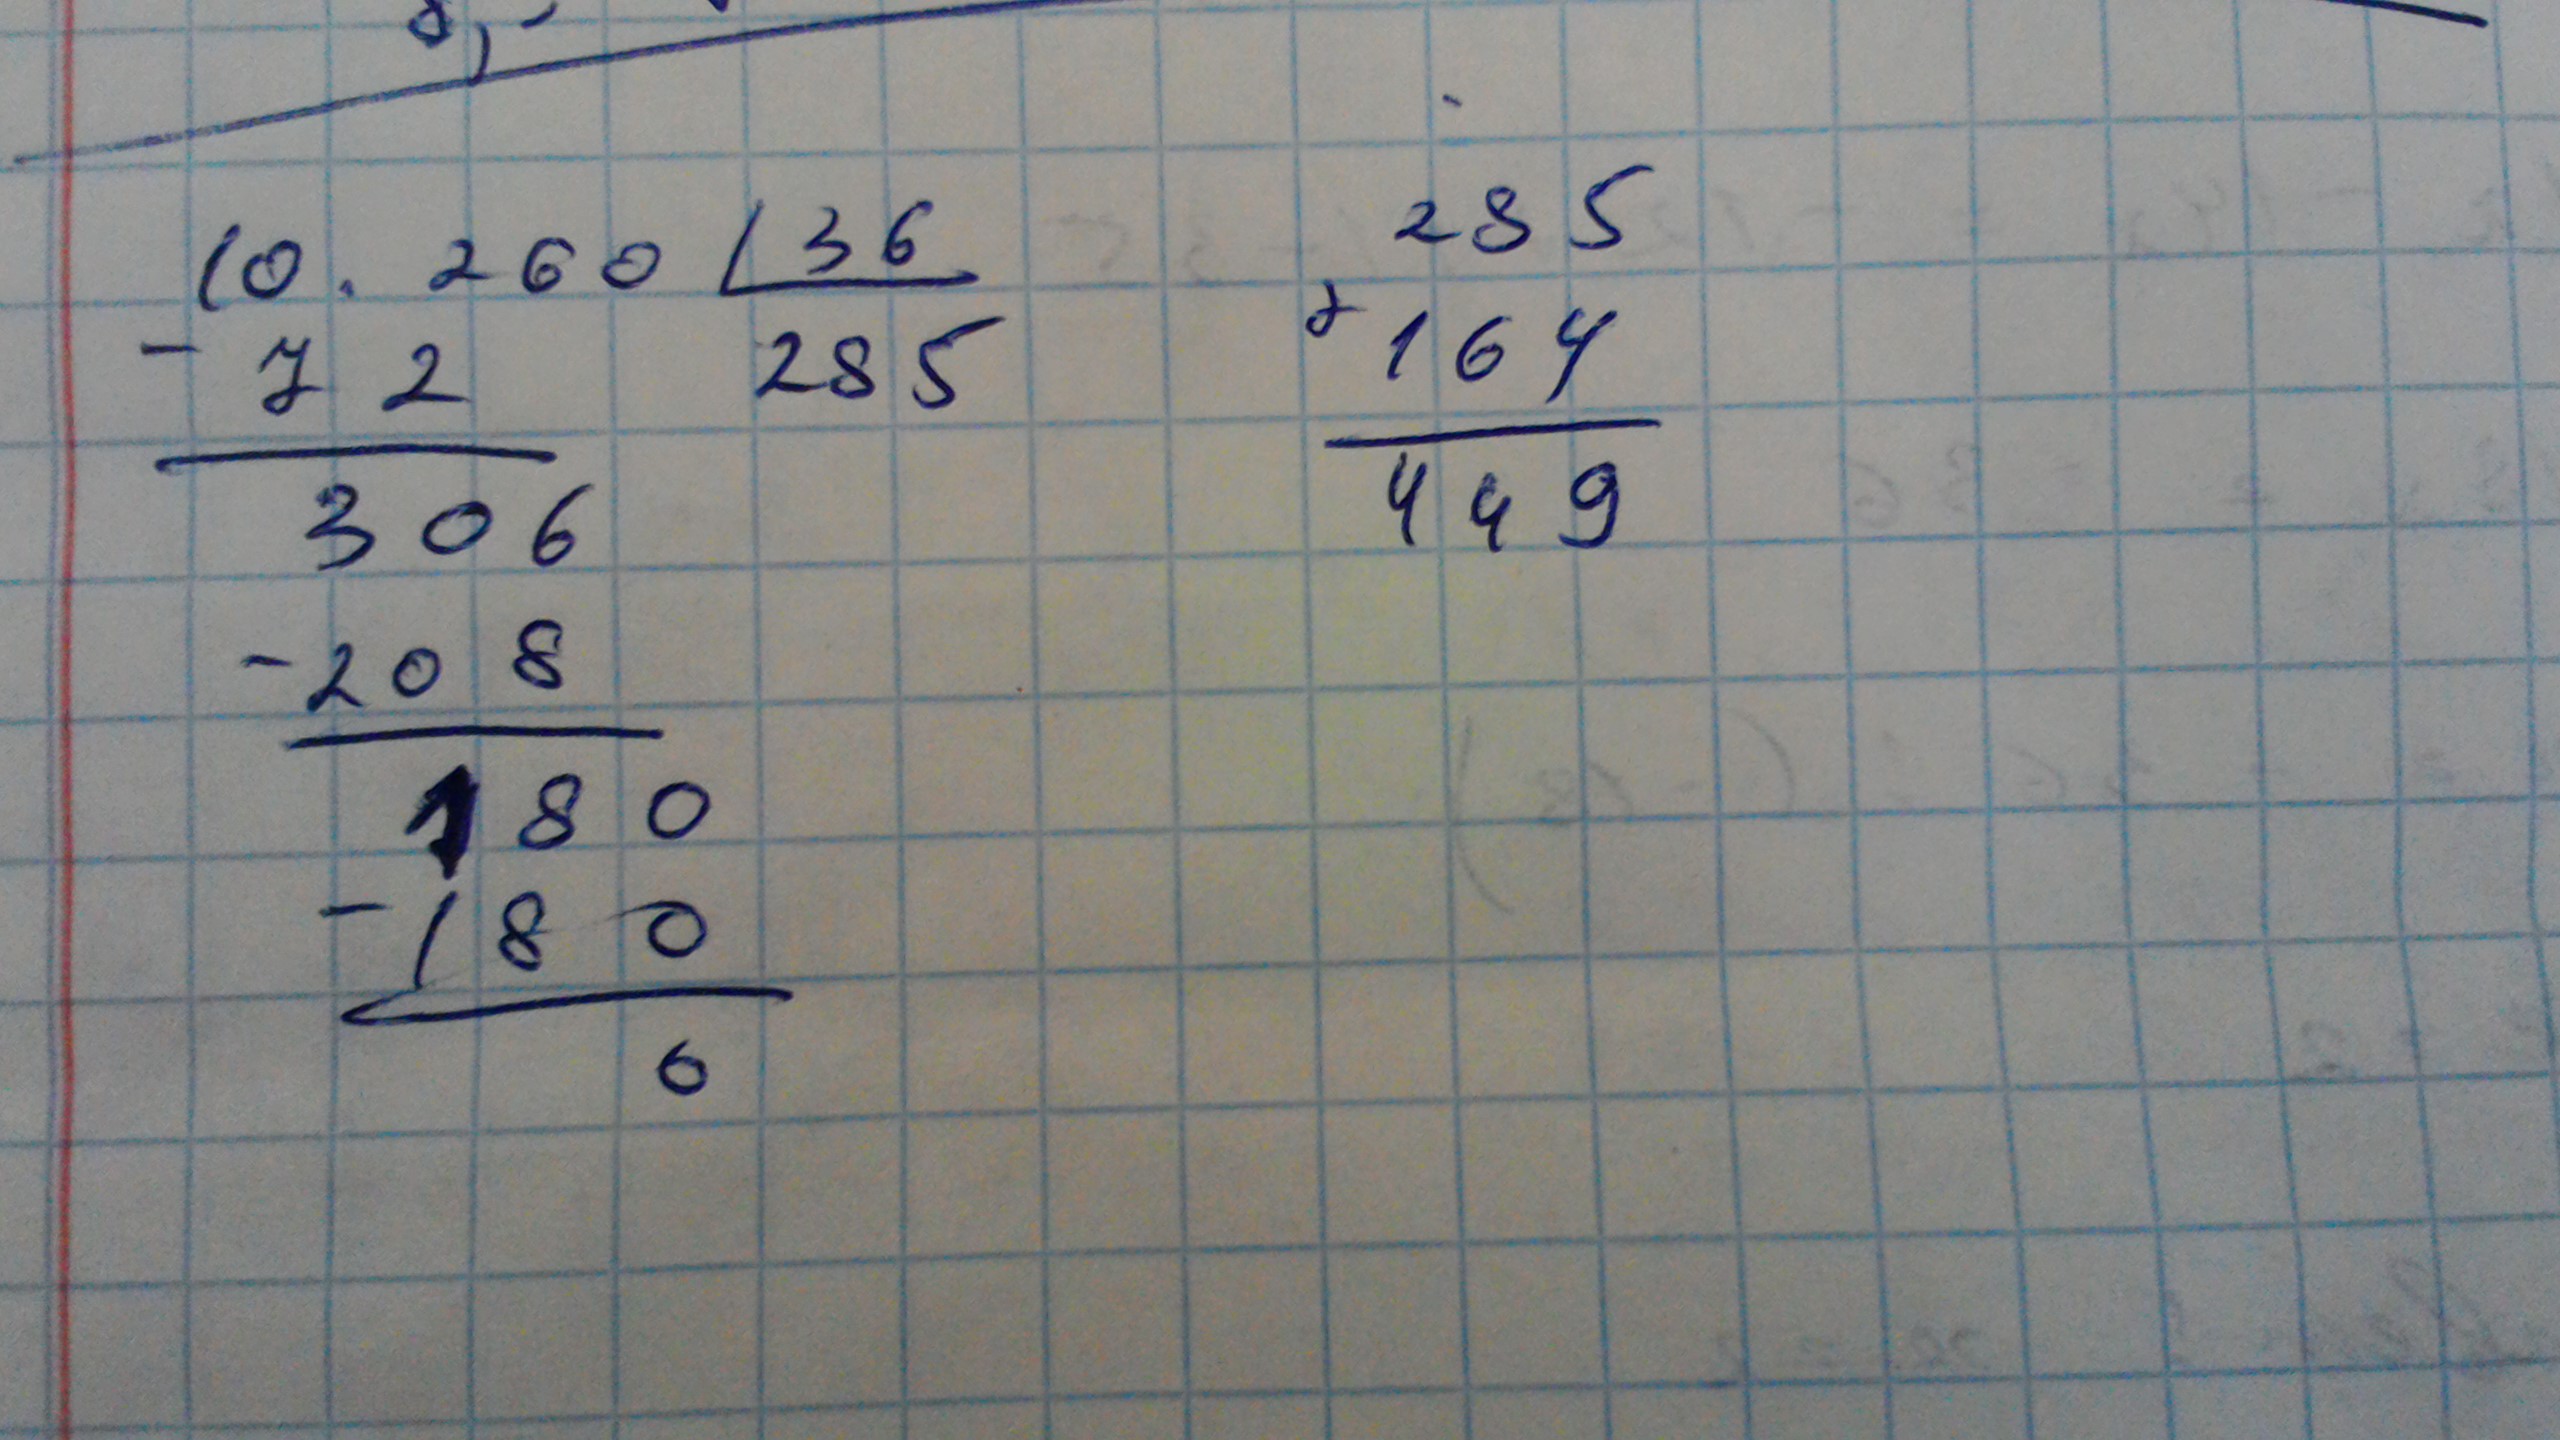 10.260 36
- 72 285
306
- 208
180
- 180
0
285
+ 164
449